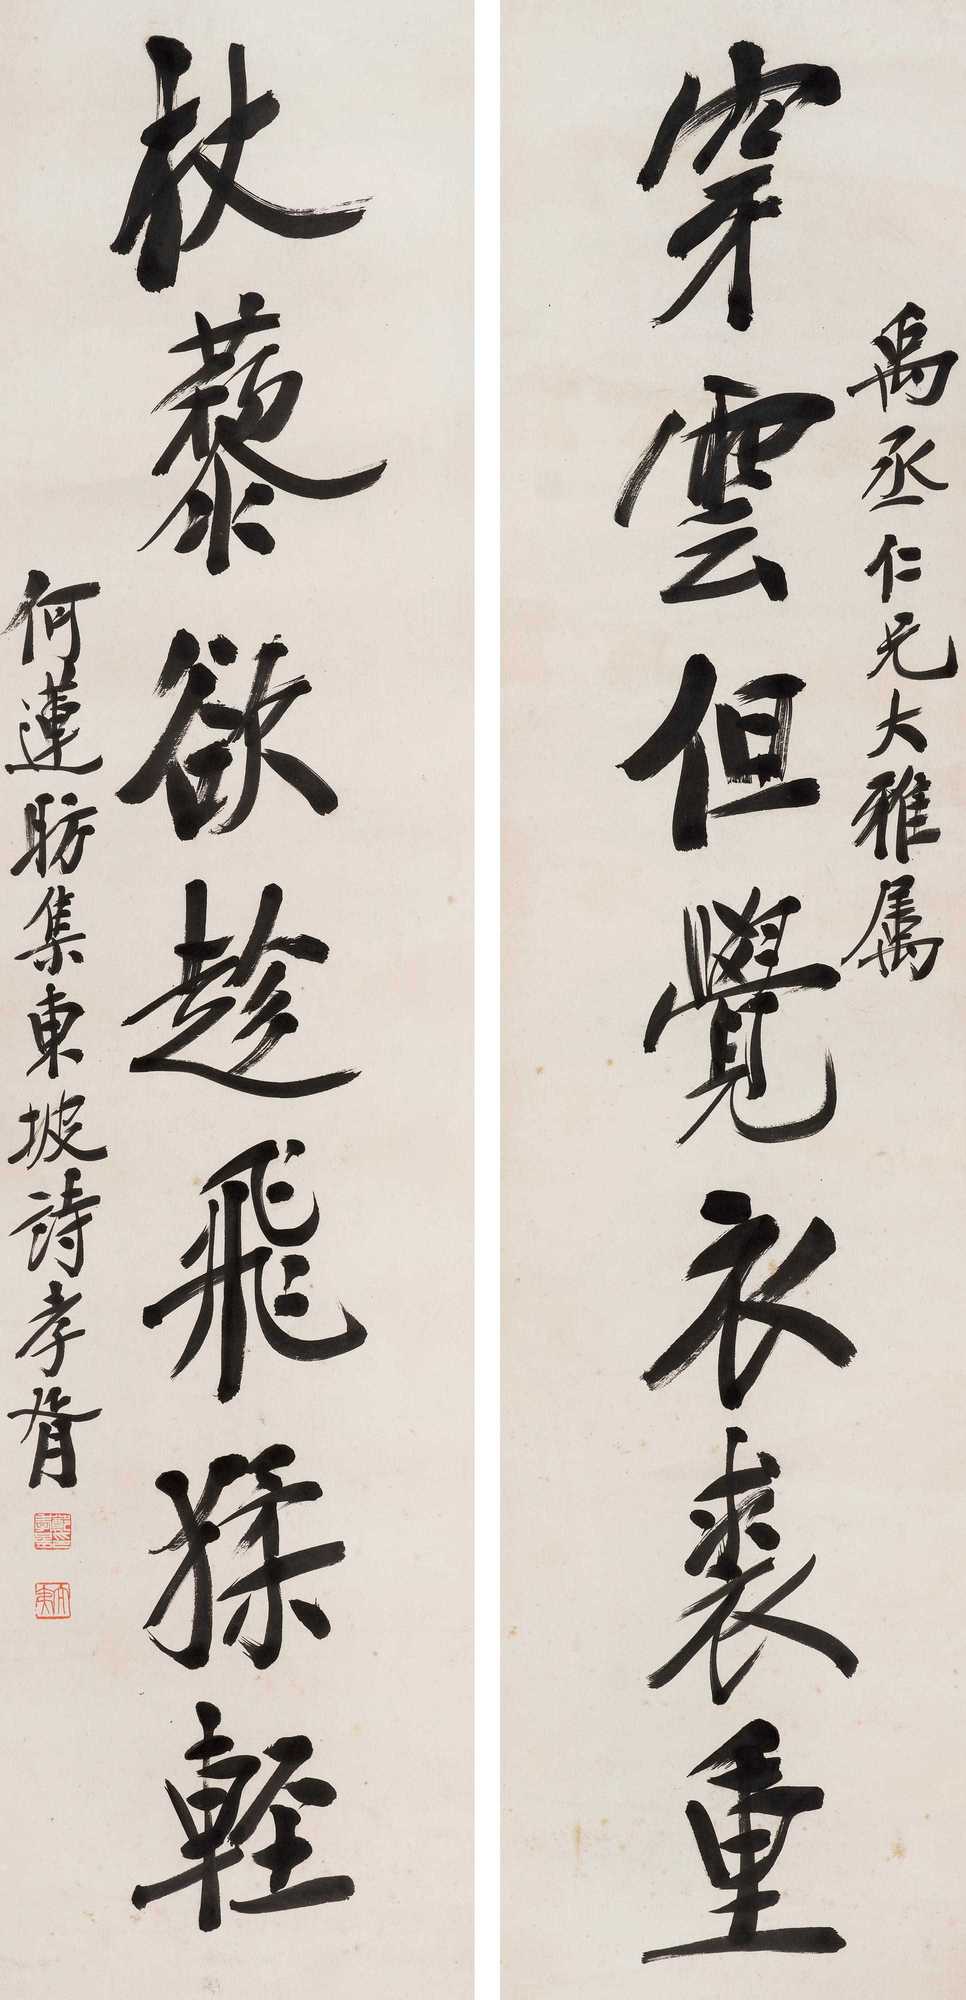 穿雲但覺衣裘重
禹丞仁兄大雅属
杖藜欲趁飛猱輕
何蓮舫集東坡詩孝胥